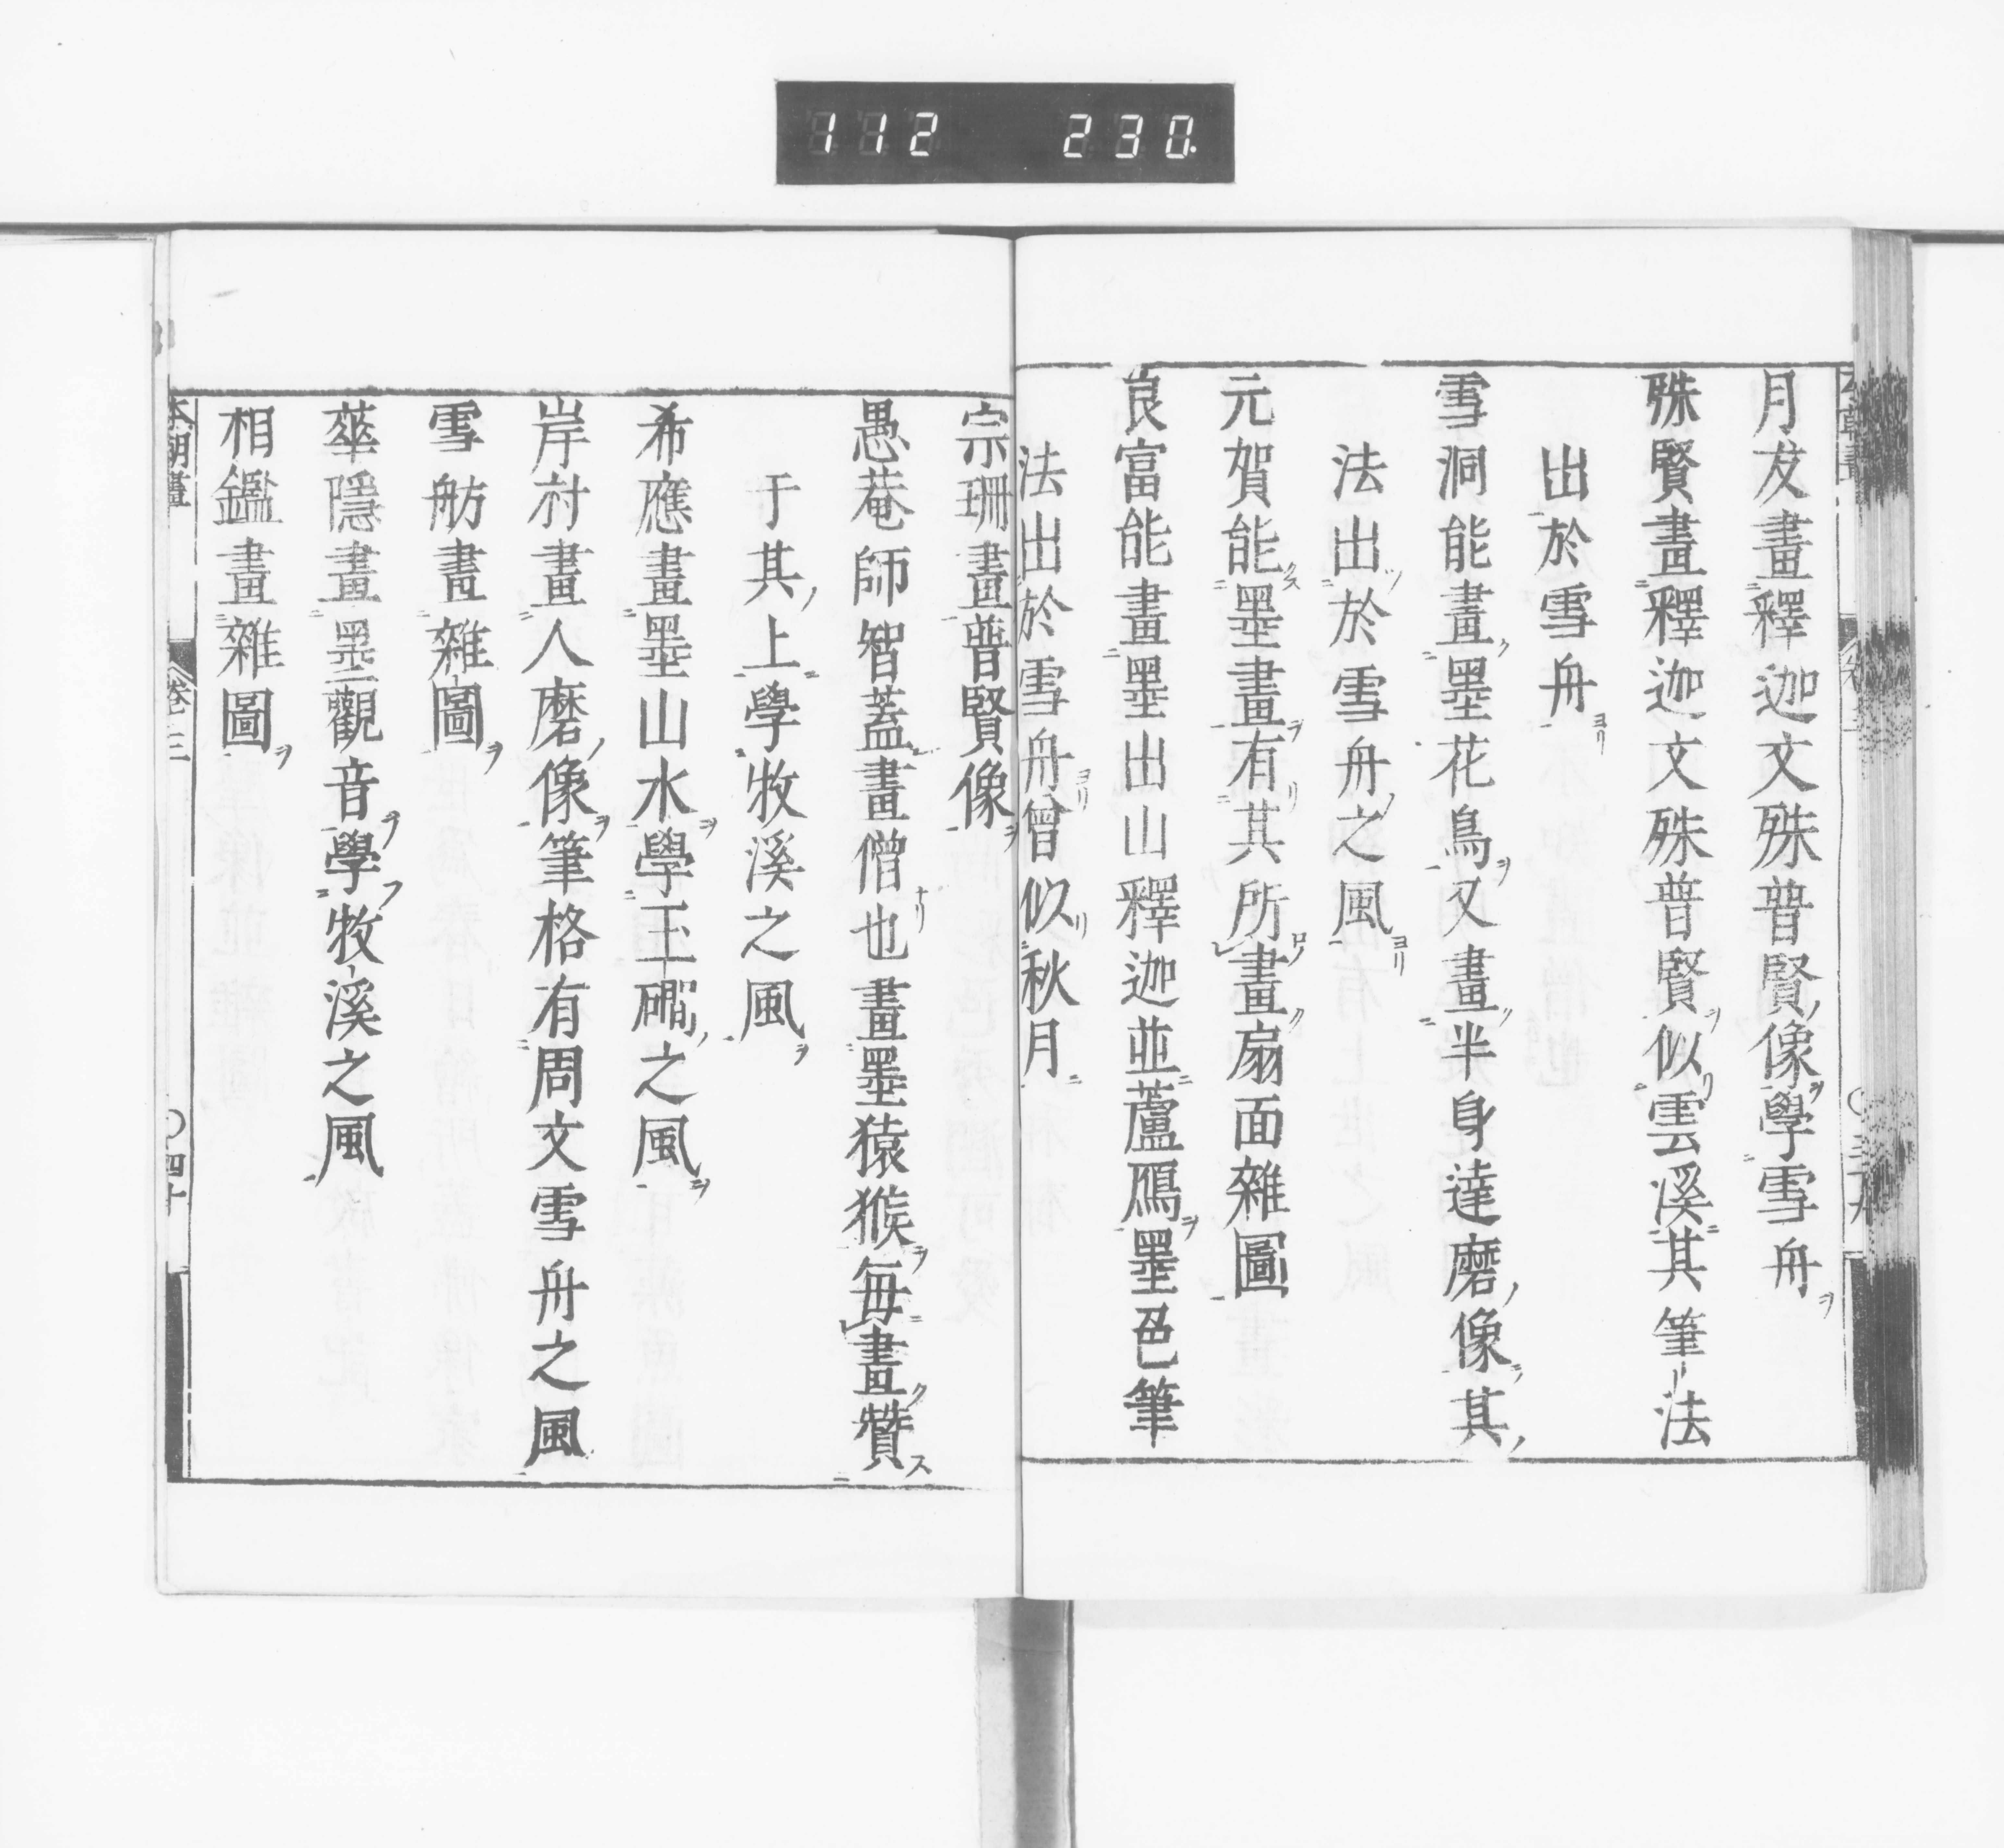 112 230.
月友畫釋迦文殊普賢像學雪舟
殊賢畫釋迦文殊普賢似雲溪其筆法
出於雪舟
雪洞能畫墨花鳥又畫半身達磨像其
法出於雪舟之風
元賀能墨畫有其所畫扇面雜圖
良富能畫墨出山釋迦並蘆鴈墨色筆
法出於雪舟曾似秋月
宗珊畫普賢像
愚菴師智蓋畫僧也畫墨猿猴每畫贊
于其上學牧溪之風
希應畫墨山水學玉礀之風
岸村畫人磨像筆格有周文雪舟之風
雪舫畫雜圖
華隱畫墨觀音學牧溪之風
相鑑畫雜圖
本朝畫 卷三 〇四十